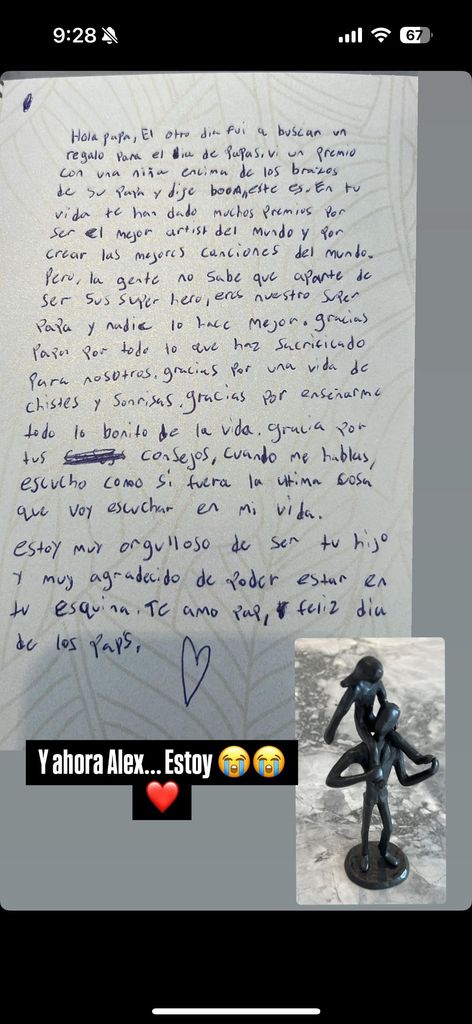 9:28
67
Hola papa, El otro dia fui a buscan un
regalo para el dia de papas, vi un premio
con una niña encima de los brazos
de su papa y dije boom, este es. En tu
vida te han dado muchos premios por
ser el mejor artist del mundo y por
crear las mejores canciones del mundo.
Pero, la gente no sabe que aparte de
ser sus super hero, eres nuestro super
papa y nadie lo hace mejor. gracias
papa por todo lo que haz sacrificado
para nosotros. gracias por una vida de
chistes y sonrisas. gracias por enseñarme
todo lo bonito de la vida. gracia por
tus consejos, cuando me hablas,
escucho como si fuera la ultima cosa
que voy escuchar en mi vida.
estoy muy orgulloso de ser tu hijo
y muy agradecido de poder estar en
tu esquina. Te amo pap, feliz dia
de los paps.
Y ahora Alex... Estoy 😭😭
❤️